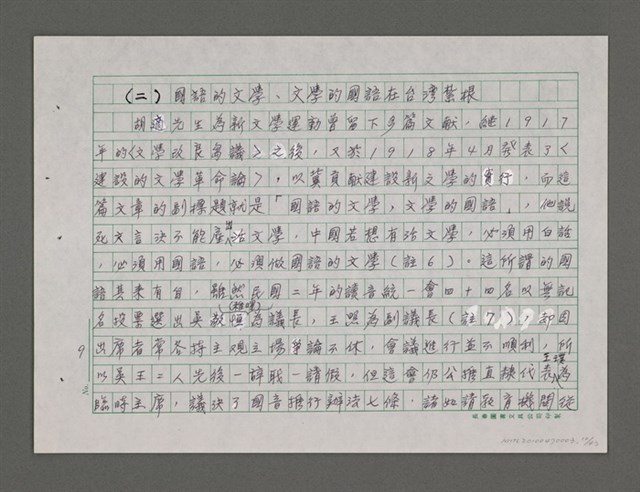 (二) 國語的文學、文學的國語在台灣紮根
胡適先生為新文學運動曾留下多篇文獻，繼1917
年的〈文學改良芻議〉之後，又於1918年4月發表了〈
建設的文學革命論〉，以冀貢獻建設新文學的實行，而這
篇文章的副標題就是「國語的文學，文學的國語」，他說
死文言決不能產出活文學，中國若想有活文學，必須用白話
，必須用國語，必須做國語的文學（註6）。這所謂的國
語其來有自，雖然民國二年的讀音統一會四十四名以無記
名投票選出吳敬恆(稚暉)為議長，王照為副議長（註7），卻因
出席者常各持主觀立場爭論不休，會議進行並不順利，所
以吳王二人先後一辭職一請假，但這會仍公推直隸代表王璞為
臨時主席，議決了國音推行辦法七條，諸如請教育機關從
9
No.